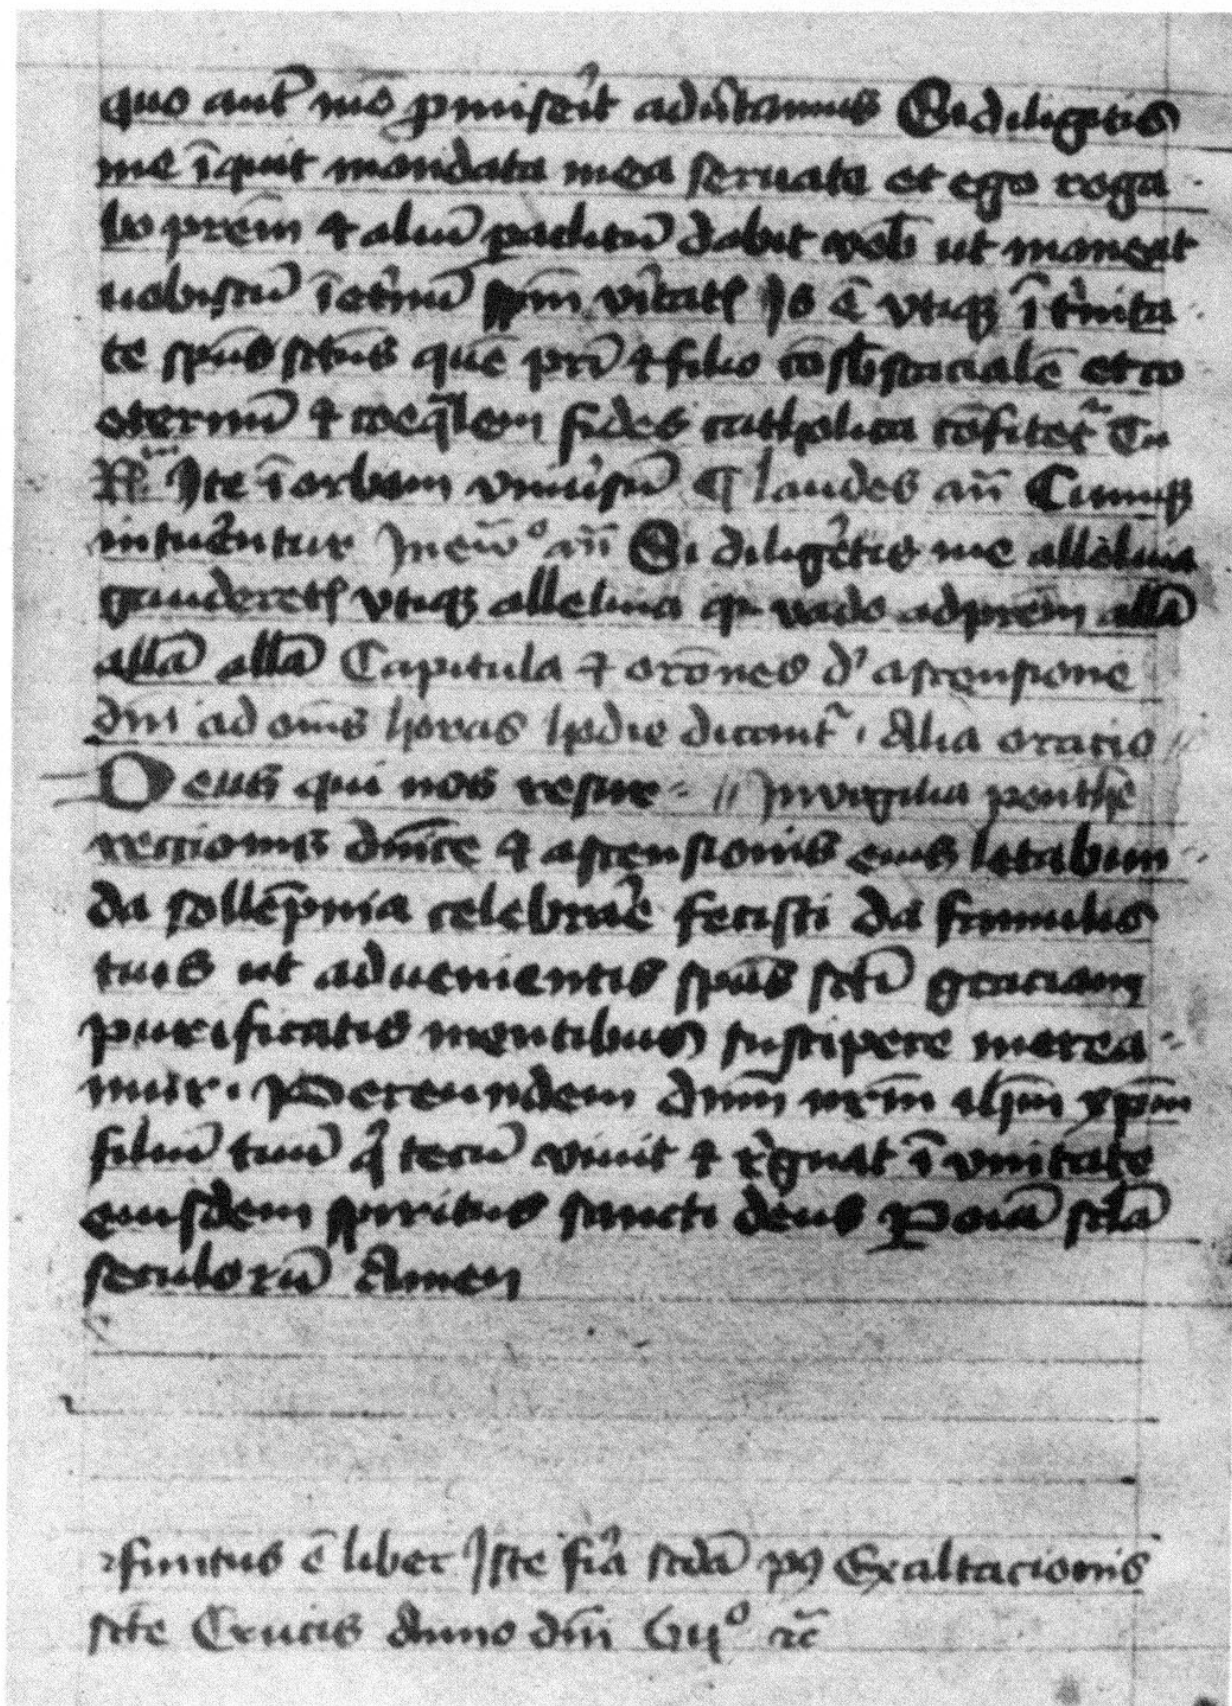 quo aut̄ mō p̄miserit aduertamus Si diligitis
me īquit mandata mea seruate et ego roga
bo pr̄em ⁊ aliū paclitū dabit vob̄ ut maneat
uobiscū ī et̓nū sp̄m v̓itatis Is ē vtiqꝫ ī t̓nita
te sp̄us sc̄tus quē pr̄i ⁊ filio cōsb̄stācialē et co
eternū ⁊ coeq̄lem fides catholica cōfitet̓ Tu
R̄ Ite ī orbem vniu̓sū ¶ laudes an̄ Cumqꝫ
intuerentur In ew̄ᵒ an̄ Si diligeretis me alleluia
gauderetis vtiqꝫ alleluia qr vado ad pr̄em allā
allā allā Capitula ⁊ orōnes d' ascensione
dn̄i ad om̄s horas hodie dicunt̓ . Alia oratio //
Deus qui nos resur- // In vigilia penthe
rectionis dn̄ice ⁊ ascensionis eius letabun-
da sollēpnia celebrare fecisti da famulis
tuis ut aduenientis sp̄us sc̄ti graciam
purificatis mentibus suscipere merea-
mur . Per eundem dn̄m nr̄m ih̄m xp̄m
filiū tuū q̄ tecū viuit ⁊ regnat ī vnitate
eiusdem spiritus sancti deus P oīa sc̄la
seculorū Amen
finitus ē liber Iste fr̄ia sc̄da pꝰ Exaltacionis
sc̄te Crucis Anno dn̄i VIIᵒ ⁊c̄